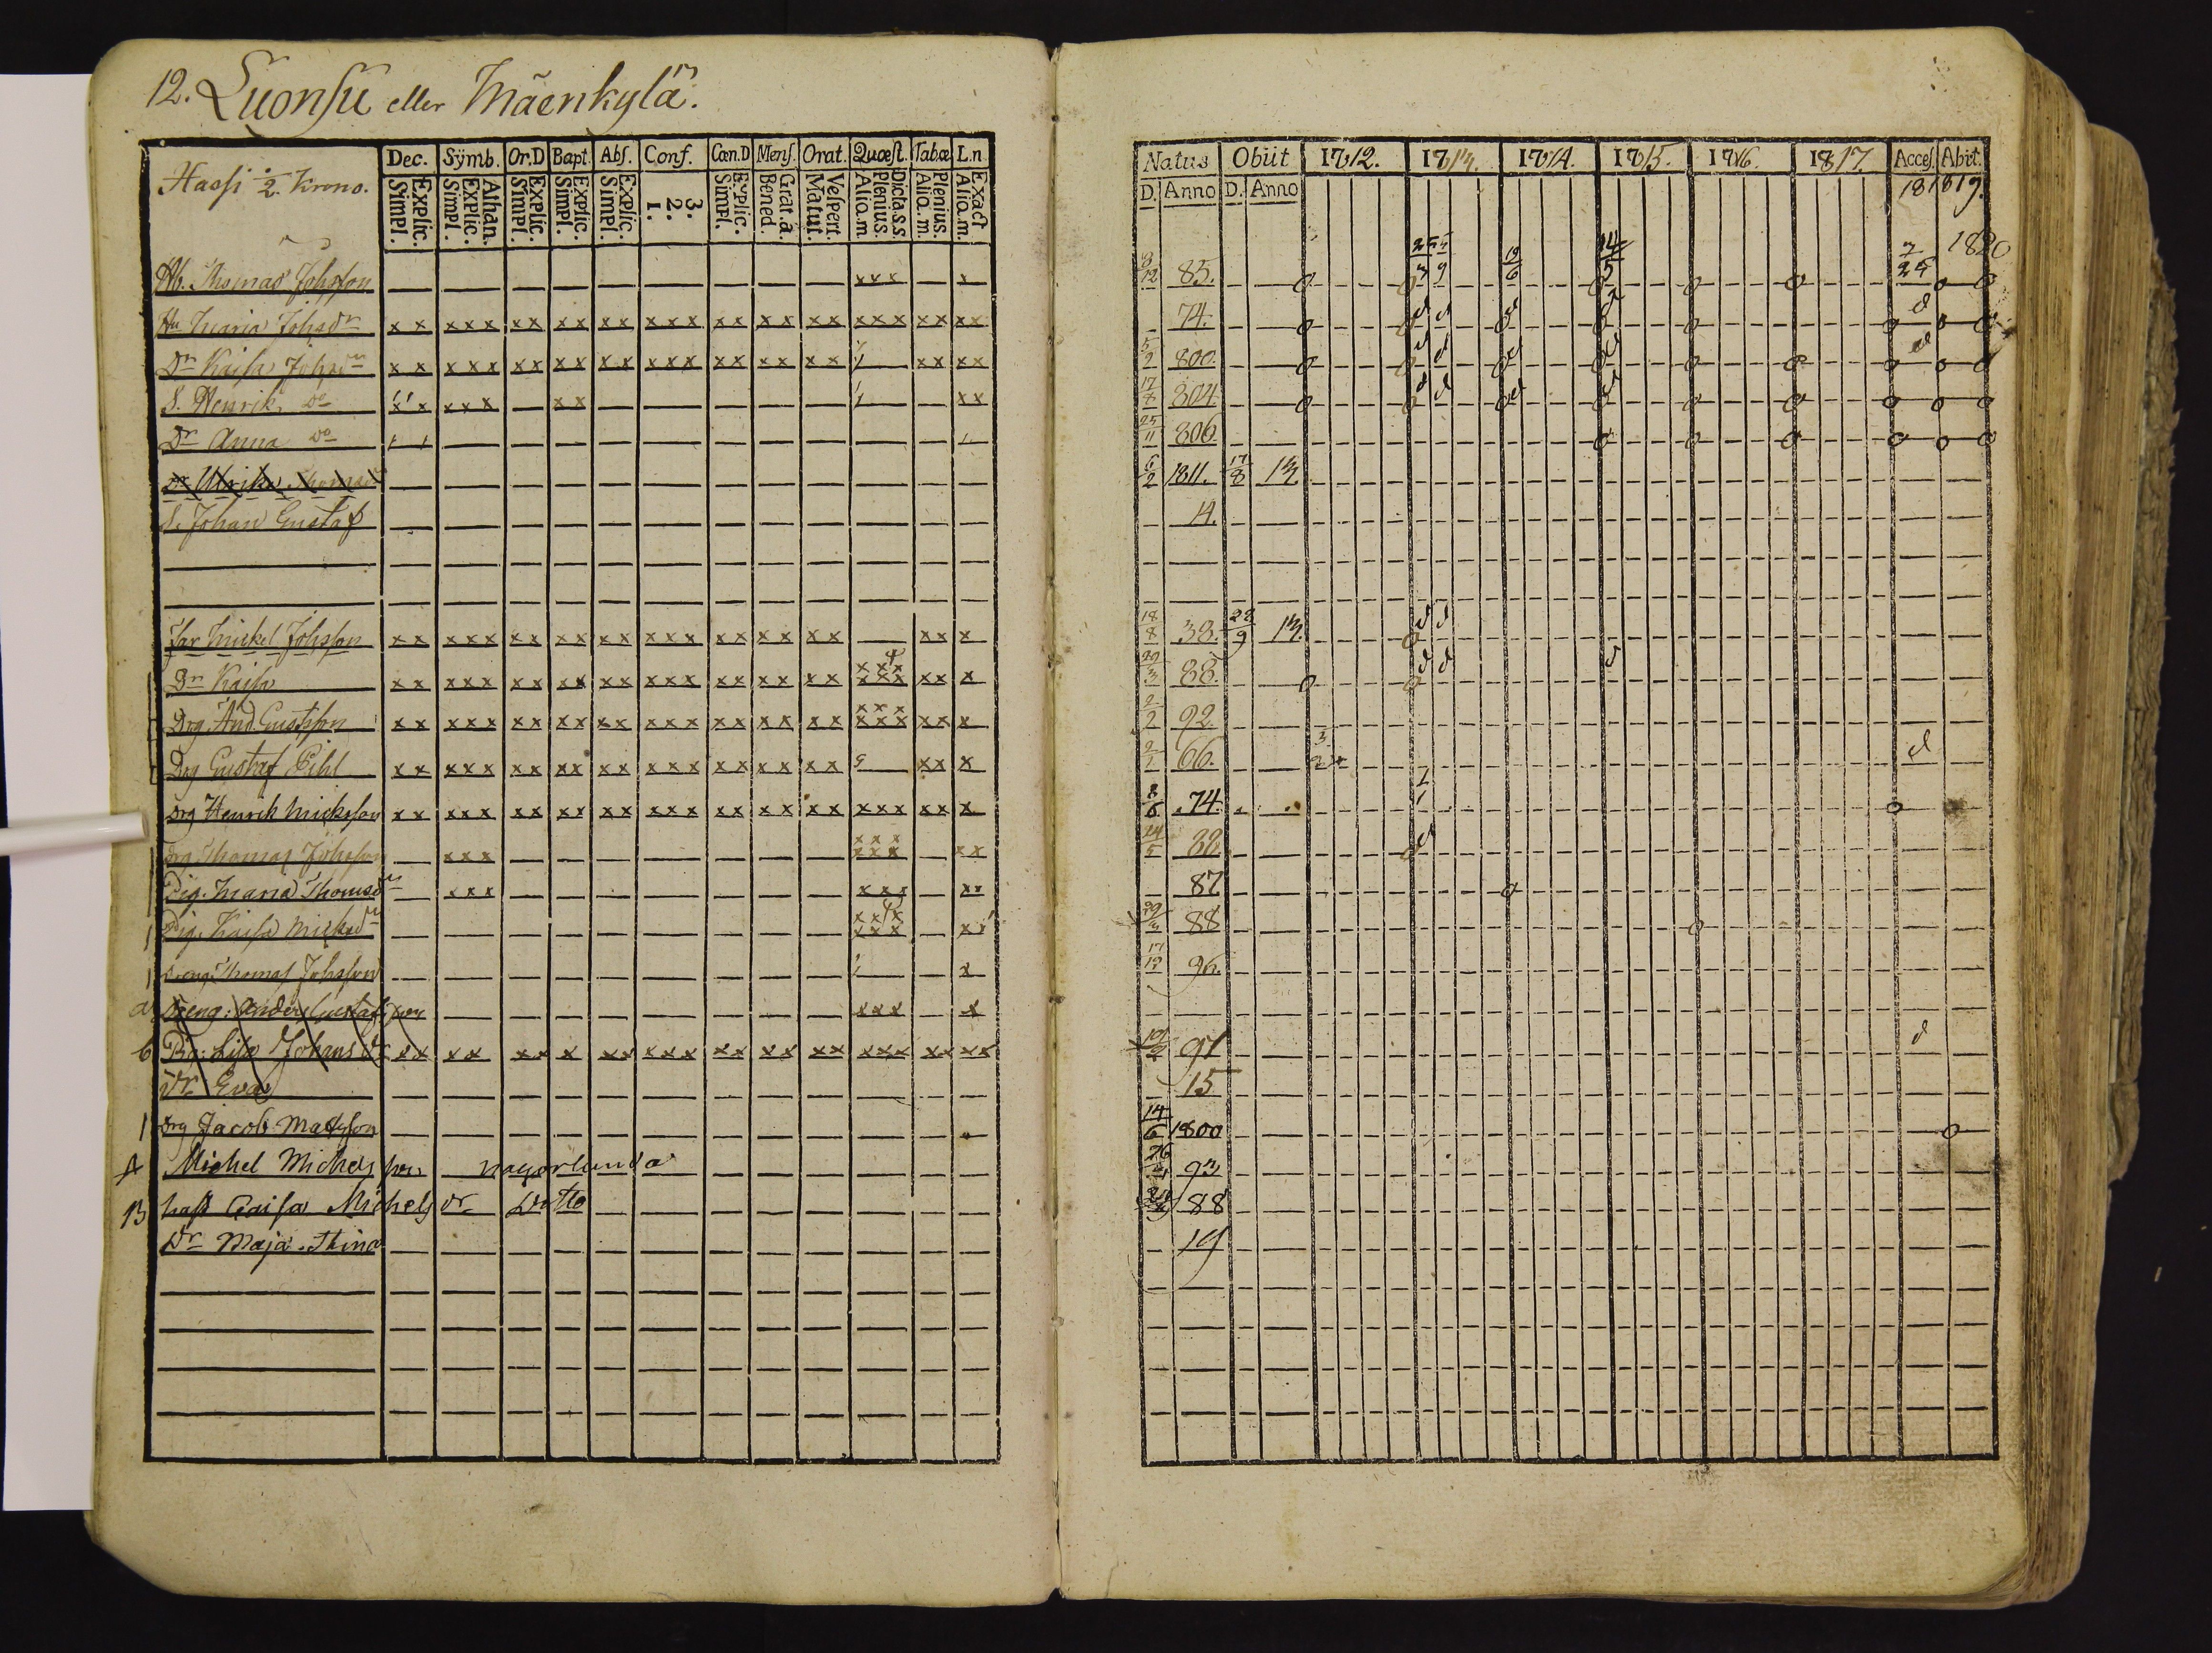 12. Luonsu eller Mäenkylä.
Hassi ½ Krono.
Dec. Symb. Or.D Bapt. Abs. Conf. Cœn.D Mens. Orat. Quæst. Tabæ L.n
Explic. Simpl. Athan. Explic. Simpl. Explic. Simpl. Explic. Simpl. Explic. Simpl. 3. 2. 1. Explic. Simpl. Grat. a. Bened. Vespert. Matut. Dicta.s.s. Plenius. Alia.m. Plenius. Alia.m. Exact Alia.m.
Hb. Thomas Johsson
Hu Maria Johsdr
Dr Kaisa Johsdr
S. Henrik Do
Dr Anna Do
Dr Ulrika Thomasdr
S. Johan Gustaf
Far Mickel Johsson
Dr Kaisa
Drg And. Gustfsson
Drg Gustaf Pihl
Drg Henrik Micksson
Drg Thomas Johsson
Pig. Maria Thomsdr
Pig. Kaisa Micksdr
Dreng Thomas Johsson
a Dreng: Anders Gustafsson
b Pig: Lisa Johansdr
Dr Eva
Drg Jacob Matsson
A Michel Michelsson
B hust Caisa Michelsdr Ditto
Dr Maja Stina
Natus Obiit 1812. 1813. 1814. 1815. 1816. 1817. Acces. Abiit.
D. Anno D. Anno 1818 19.
1820
8/12 85.
74.
5/2 800.
17/8 804
25/11 806
6/2 1811. 17/8 13
14.
18/8 38. 28/9 13
29/3 88.
2/2 92
2/1 66.
8/6 74
14/5 88
87
29/3 88
17/12 96.
97
15
14/6 1800
26 93
88
19